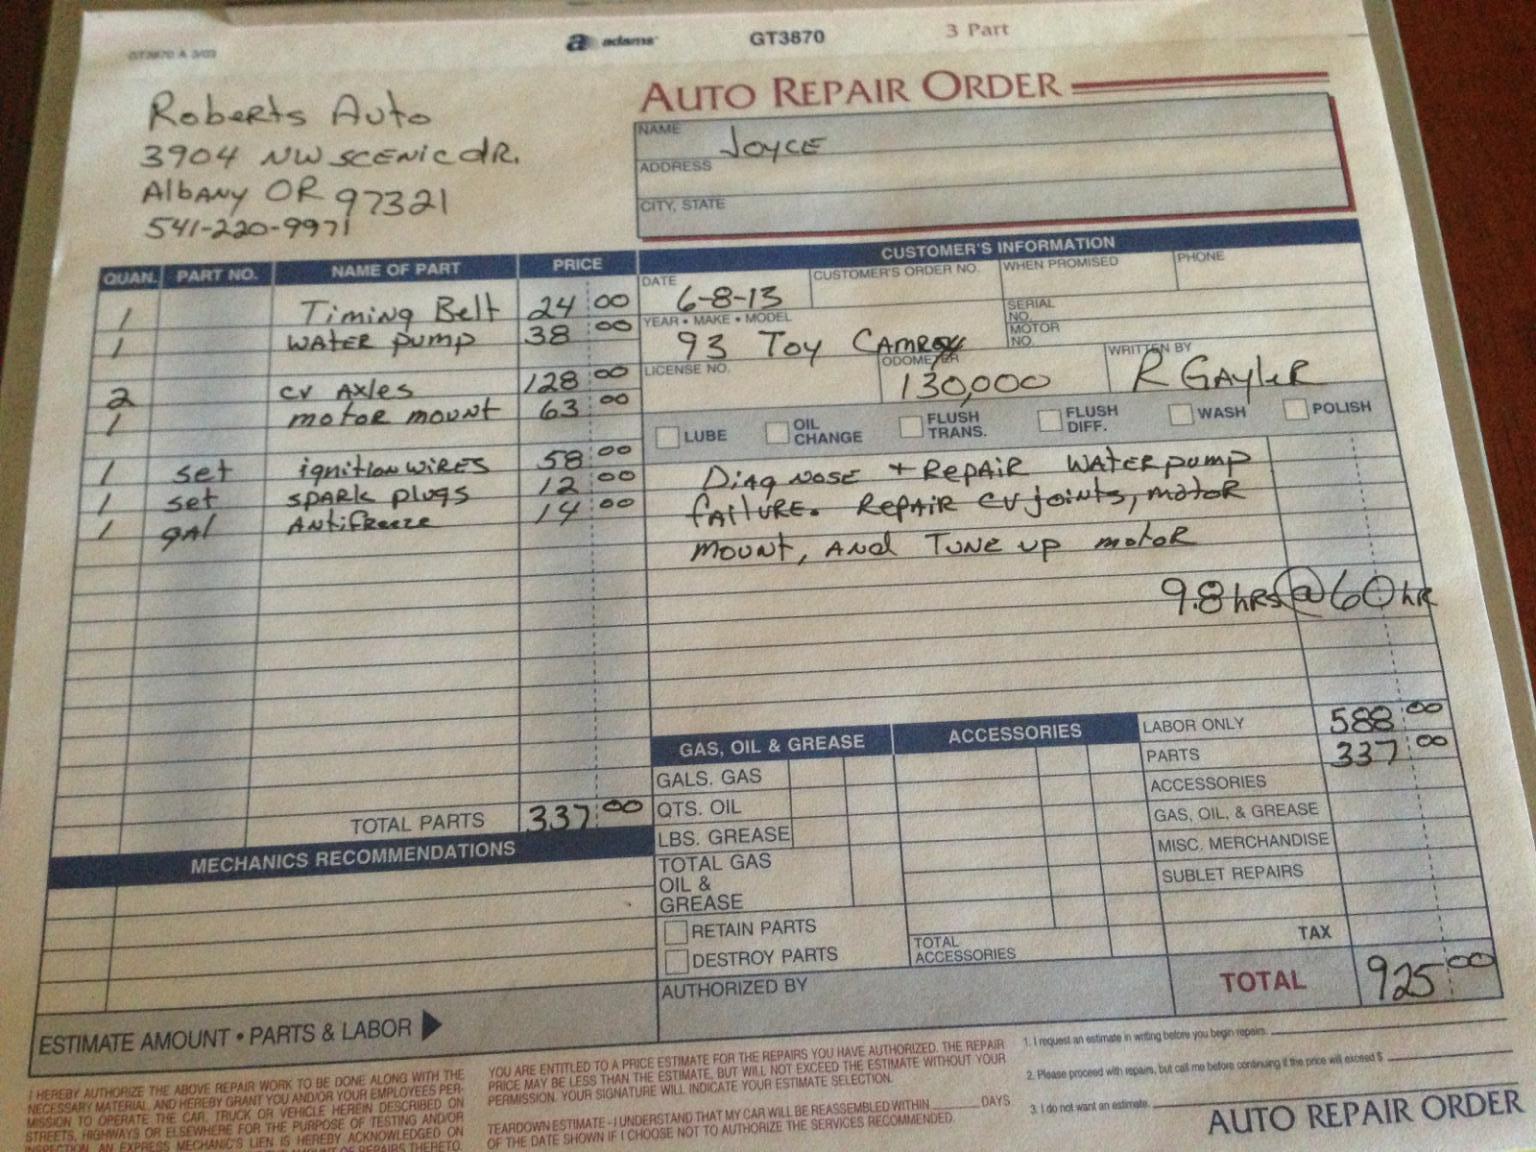 GT3870 A 3/03
a adams
GT3870
3 Part
Roberts Auto
3904 NW SCENIC dR.
Albany OR 97321
541-220-9971
AUTO REPAIR ORDER
NAME JOYCE
ADDRESS
CITY, STATE
QUAN. PART NO. NAME OF PART PRICE
1 Timing Belt 24 00
1 WATER pump 38 00
2 CV Axles 128 00
1 motor mount 63 00
1 set ignition WIRES 58 00
1 set SPARK plugs 12 00
1 gAl ANtifReeze 14 00
TOTAL PARTS 337 00
CUSTOMER'S INFORMATION
DATE 6-8-13
CUSTOMER'S ORDER NO.
WHEN PROMISED
PHONE
YEAR • MAKE • MODEL 93 Toy CAMRY
SERIAL NO.
MOTOR NO.
LICENSE NO.
ODOMETER 130,000
WRITTEN BY R GAyleR
LUBE
OIL CHANGE
FLUSH TRANS.
FLUSH DIFF.
WASH
POLISH
DiAgNose + RepAiR WATER pump
fAiluRe. RepAiR CV joints, motoR
mount, ANd TuNe up motoR
9.8 hRs @ 60 hR
GAS, OIL & GREASE
GALS. GAS
QTS. OIL
LBS. GREASE
TOTAL GAS
OIL &
GREASE
RETAIN PARTS
DESTROY PARTS
ACCESSORIES
TOTAL
ACCESSORIES
LABOR ONLY 588 00
PARTS 337 00
ACCESSORIES
GAS, OIL, & GREASE
MISC. MERCHANDISE
SUBLET REPAIRS
TAX
TOTAL 925 00
AUTHORIZED BY
MECHANICS RECOMMENDATIONS
ESTIMATE AMOUNT • PARTS & LABOR
I HEREBY AUTHORIZE THE ABOVE REPAIR WORK TO BE DONE ALONG WITH THE
NECESSARY MATERIAL, AND HEREBY GRANT YOU AND/OR YOUR EMPLOYEES PER-
MISSION TO OPERATE THE CAR, TRUCK OR VEHICLE HEREIN DESCRIBED ON
STREETS, HIGHWAYS OR ELSEWHERE FOR THE PURPOSE OF TESTING AND/OR
INSPECTION. AN EXPRESS MECHANIC'S LIEN IS HEREBY ACKNOWLEDGED ON
AMOUNT OF REPAIRS THERETO.
YOU ARE ENTITLED TO A PRICE ESTIMATE FOR THE REPAIRS YOU HAVE AUTHORIZED. THE REPAIR
PRICE MAY BE LESS THAN THE ESTIMATE, BUT WILL NOT EXCEED THE ESTIMATE WITHOUT YOUR
PERMISSION. YOUR SIGNATURE WILL INDICATE YOUR ESTIMATE SELECTION.
TEARDOWN ESTIMATE - I UNDERSTAND THAT MY CAR WILL BE REASSEMBLED WITHIN ____ DAYS
OF THE DATE SHOWN IF I CHOOSE NOT TO AUTHORIZE THE SERVICES RECOMMENDED.
1. I request an estimate in writing before you begin repairs.
2. Please proceed with repairs, but call me before continuing if the price will exceed $
3. I do not want an estimate.
AUTO REPAIR ORDER